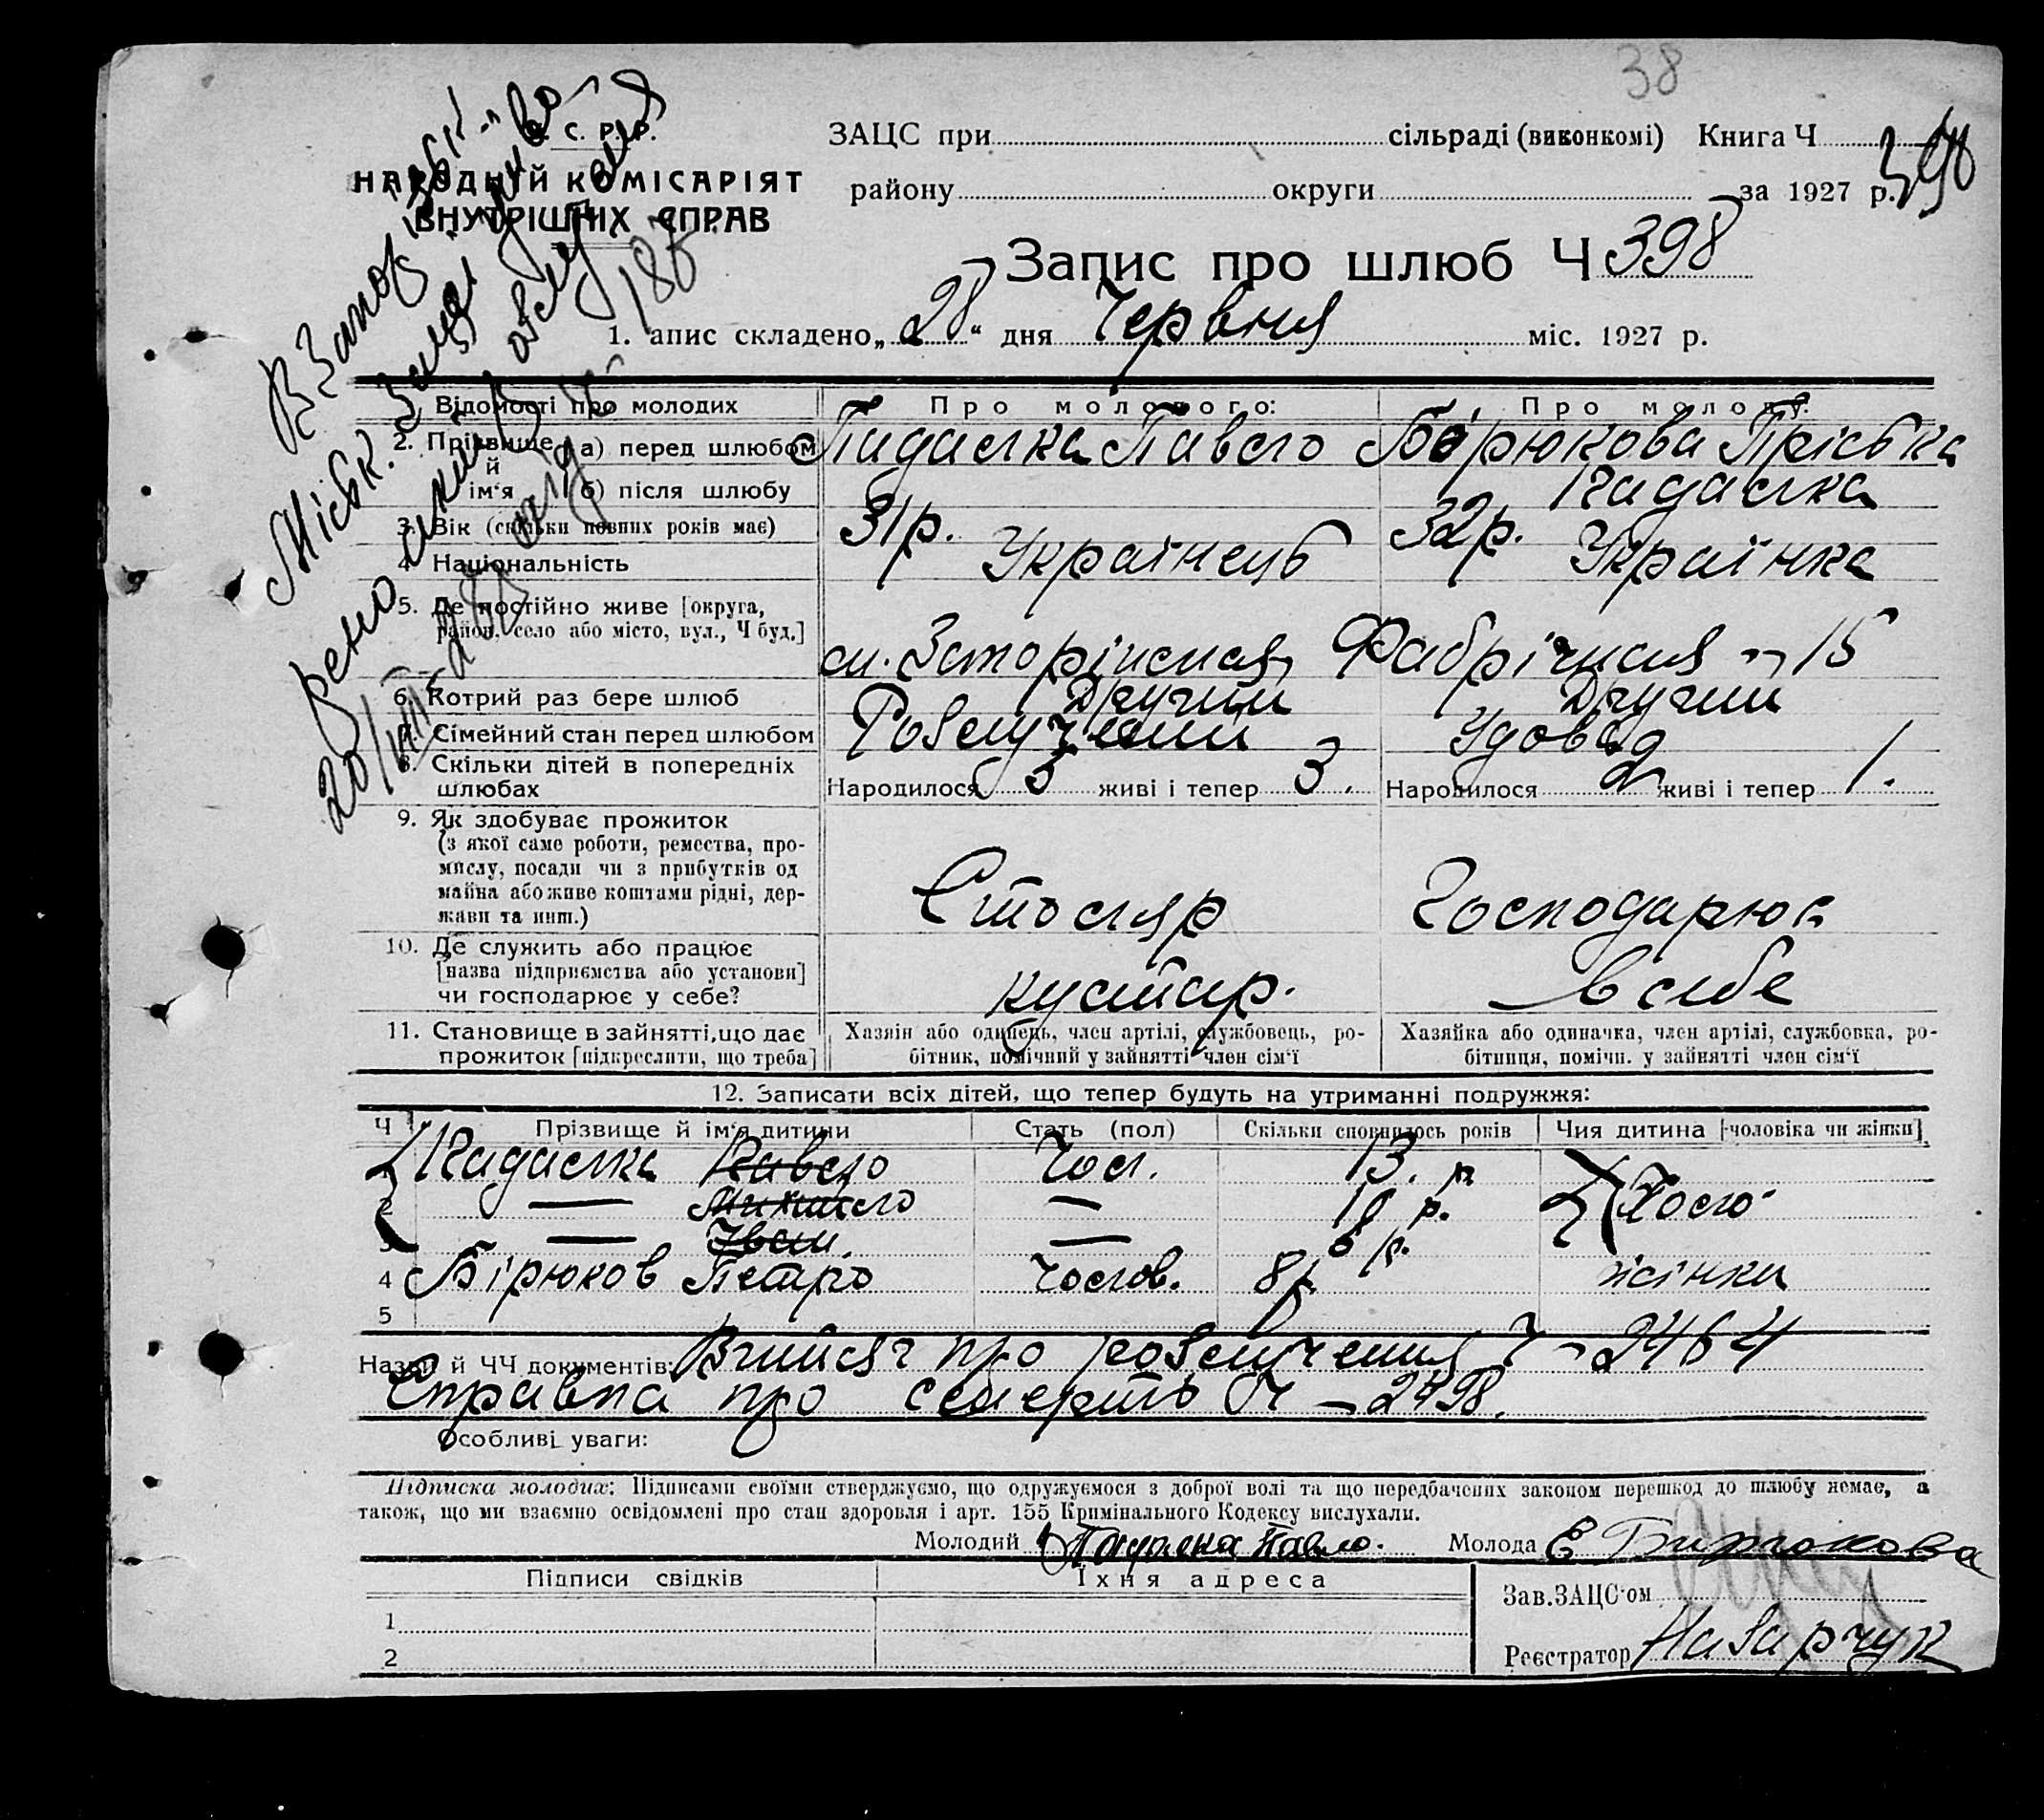 38
У. С. Р. Р.
НАРОДНИЙ КОМІСАРІЯТ
ВНУТРІШНІХ СПРАВ
ЗАЦС при сільраді (виконкомі) Книга Ч
району округи за 1927 р. 398
Запис про шлюб Ч 398
1. апис складено „28“ дня Червня міс. 1927 р.
Відомості про молодих Про молодого: Про молоду:
2. Прізвище й ім‘я а) перед шлюбом Падалка Павло Бірюкова Пріська
б) після шлюбу Падалка
3. Вік (скільки повних років має) 31 р. 32 р.
4 Національність Українець Українка
5. Де постійно живе [округа,
район, село або місто, вул., Ч буд.] Фабрічная 15
6. Котрий раз бере шлюб Другий Другий
7. Сімейний стан перед шлюбом Розлучений Удова
8. Скільки дітей в попередніх
шлюбах Народилося 3 живі і тепер 3. Народилося 2 живі і тепер 1.
9. Як здобуває прожиток
(з якої саме роботи, ремества, про-
мислу, посади чи з прибутків од
майна або живе коштами рідні, дер-
жави та инш.) Столяр Господарює
10. Де служить або працює
[назва підприємства або установи]
чи господарює у себе? кустар. в себе
11. Становище в зайнятті, що дає
прожиток [підкреслити, що треба]
Хазяїн або одинець, член артілі, службовець, ро-
бітник, помічний у зайнятті член сім‘ї
Хазяйка або одиначка, член артілі, службовка, ро-
бітниця, помічн. у зайнятті член сім‘ї
12. Записати всіх дітей, що тепер будуть на утриманні подружжя:
Ч Прізвище й ім‘я дитини Стать (пол) Скільки сповнилось років Чия дитина [чоловіка чи жінки]
1 Падалка Павло Чол. 13. р.
2 — Михайло — 10 р. Чоло.
3 — Іван. — 6 р.
4 Бірюков Петро Чолов. 8 р. жінки
5
Назви й ЧЧ документів: Витяг про розлучення Ч – 2464
Справка про смерть Ч – 2498.
Особливі уваги:
Підписка молодих: Підписами своїми стверджуємо, що одружуємося з доброї волі та що передбачених законом перешкод до шлюбу немає, а
також, що ми взаємно освідомлені про стан здоровля і арт. 155 Кримінального Кодексу вислухали.
Молодий Падалка Павло. Молода Е Бирюкова
Підписи свідків Їхня адреса
Зав.ЗАЦС‘ом
1
2
Реєстратор Назарчук